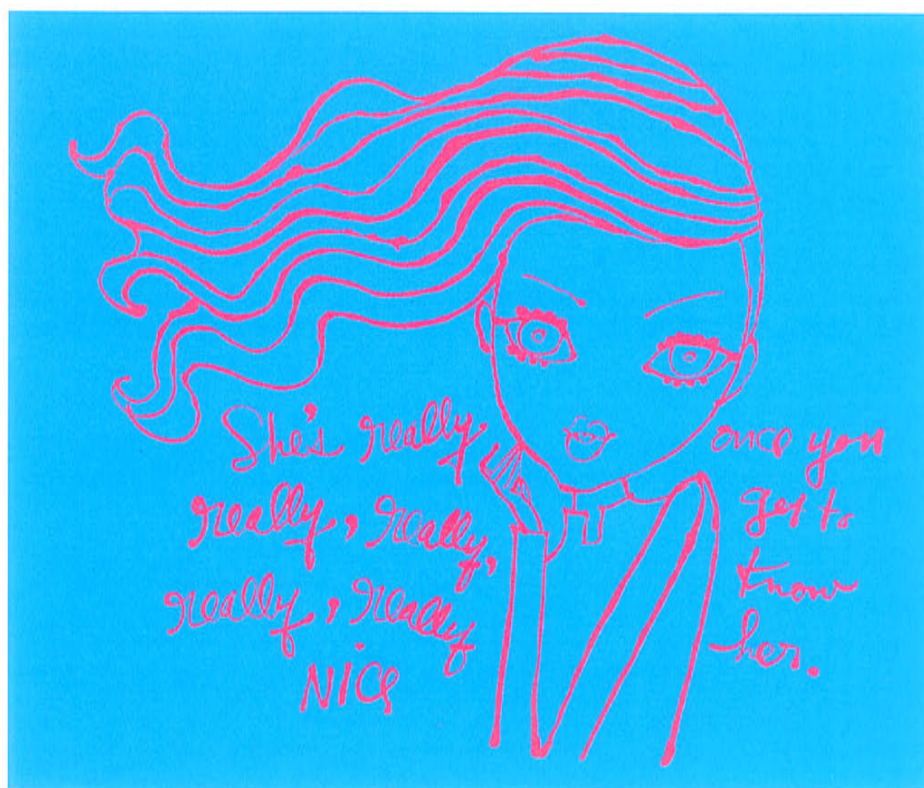 She's really,
really, really,
really, really
NICe
once you
get to
know
her.